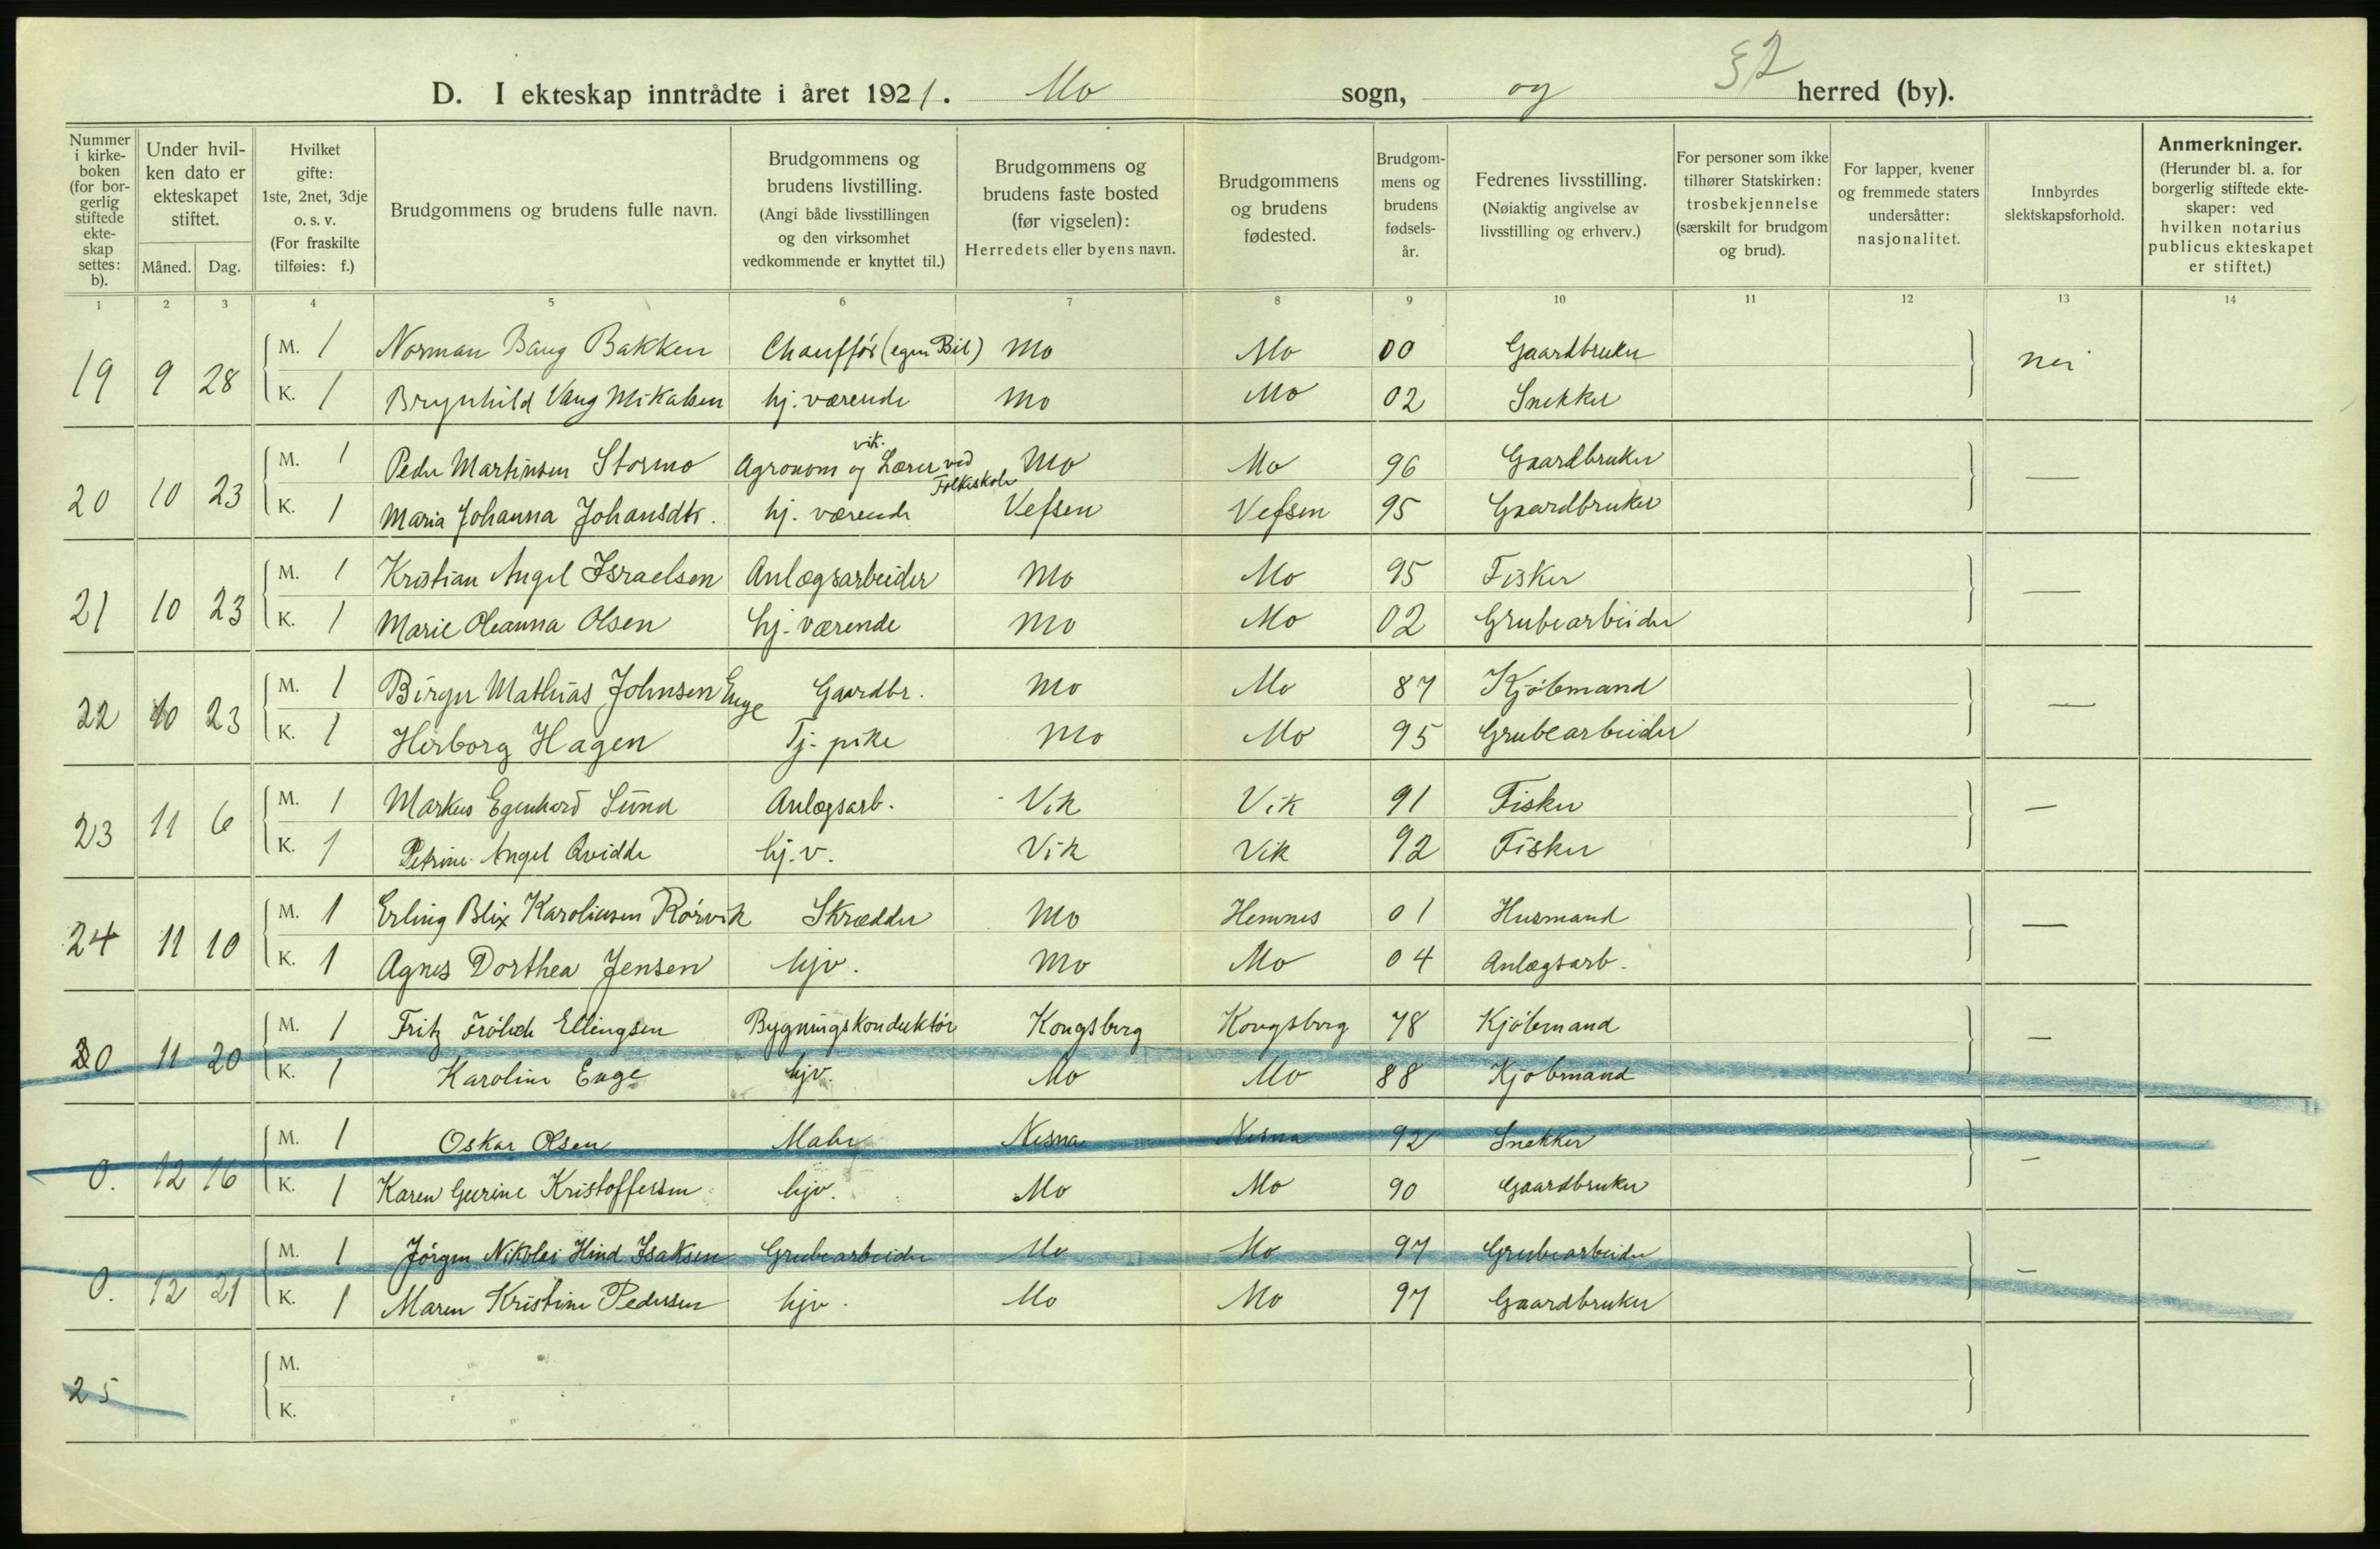 52
D. I ekteskap inntrådte i året 1921. Mo sogn, og herred (by).
Nummer i kirke-boken (for bor-gerlig stiftede ekte-skap settes: b).
Under hvil-ken dato er ekteskapet stiftet.
Måned. Dag.
Hvilket gifte: 1ste, 2net, 3dje o. s. v. (For fraskilte tilføies: f.)
Brudgommens og brudens fulle navn.
Brudgommens og brudens livstilling. (Angi både livsstillingen og den virksomhet vedkommende er knyttet til.)
Brudgommens og brudens faste bosted (før vigselen): Herredets eller byens navn.
Brudgommens og brudens fødested.
Brudgom-mens og brudens fødsels-år.
Fedrenes livsstilling. (Nøiaktig angivelse av livsstilling og erhverv.)
For personer som ikke tilhører Statskirken: trosbekjennelse (særskilt for brudgom og brud).
For lapper, kvener og fremmede staters undersåtter: nasjonalitet.
Innbyrdes slektskapsforhold.
Anmerkninger. (Herunder bl. a. for borgerlig stiftede ekte-skaper: ved hvilken notarius publicus ekteskapet er stiftet.)
1 2 3 4 5 6 7 8 9 10 11 12 13 14
19 9 28 M. 1 Norman Baug Bakken Chauffør (egen Bil) Mo Mo 00 Gaardbruker nei
K. 1 Brynhild Vang Mikalsen hj. værende Mo Mo 02 Snekker
20 10 23 M. 1 Peder Martinsen Stormo Agronom og vik. Lærer ved Folkeskole Mo Mo 96 Gaardbruker —
K. 1 Maria Johanna Johansdtr. hj. værende Vefsen Vefsen 95 Gaardbruker
21 10 23 M. 1 Kristian Angel Israelsen Anlægsarbeider Mo Mo 95 Fisker —
K. 1 Marie Oleanna Olsen hj. værende Mo Mo 02 Grubearbeider
22 10 23 M. 1 Birger Mathias Johnsen Enge Gaardbr. Mo Mo 87 Kjøbmand —
K. 1 Herborg Hagen Tj. pike Mo Mo 95 Grubearbeider
23 11 6 M. 1 Markus Egenhard Sund Anlægsarb. Vik Vik 91 Fisker —
K. 1 Petrine Angel Qvidde hj. v. Vik Vik 92 Fisker
24 11 10 M. 1 Erling Blix Karoliusen Rørvik Skrædder Mo Hemnes 01 Husmand —
K. 1 Agnes Dorthea Jensen hjv. Mo Mo 04 Anlægsarb.
0 11 20 M. 1 Fritz Frölich Ellingsen Bygningskonduktør Kongsberg Kongsberg 78 Kjøbmand —
K. 1 Karoline Enge hjv. Mo Mo 88 Kjøbmand
0. 12 16 M. 1 Oskar Olsen Maler Nesna Nesna 92 Snekker —
K. 1 Karen Geerine Kristoffersen hjv. Mo Mo 90 Gaardbruker
0. 12 21 M. 1 Jørgen Nikolai Hind Isaksen Grubearbeider Mo Mo 97 Grubearbeider —
K. 1 Maren Kristine Pedersen hjv. Mo Mo 97 Gaardbruker
25 M.
K.